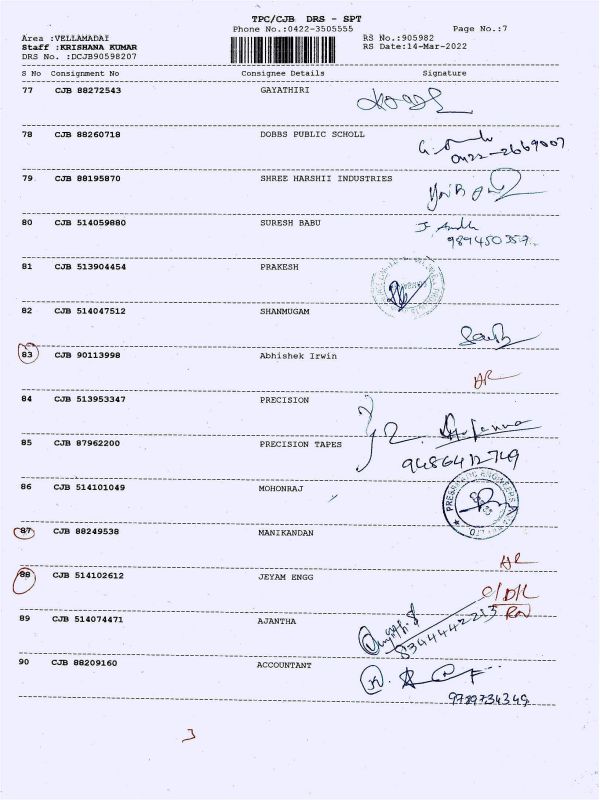 TPC/CJB DRS - SPT
Phone No.:0422-3505555 Page No.:7
Area :VELLAMADAI RS No.:905982
Staff :KRISHANA KUMAR RS Date:14-Mar-2022
DRS No. :DCJB90598207
S No Consignment No Consignee Details Signature
77 CJB 88272543 GAYATHIRI
78 CJB 88260718 DOBBS PUBLIC SCHOLL
0422-2669007
79 CJB 88195870 SHREE HARSHII INDUSTRIES
80 CJB 514059880 SURESH BABU
81 CJB 513904454 PRAKESH
82 CJB 514047512 SHANMUGAM
83 CJB 90113998 Abhishek Irwin
84 CJB 513953347 PRECISION
85 CJB 87962200 PRECISION TAPES
9486412749
86 CJB 514101049 MOHONRAJ
87 CJB 88249538 MANIKANDAN
88 CJB 514102612 JEYAM ENGG
89 CJB 514074471 AJANTHA
8344442213
90 CJB 88209160 ACCOUNTANT
9789734349
3